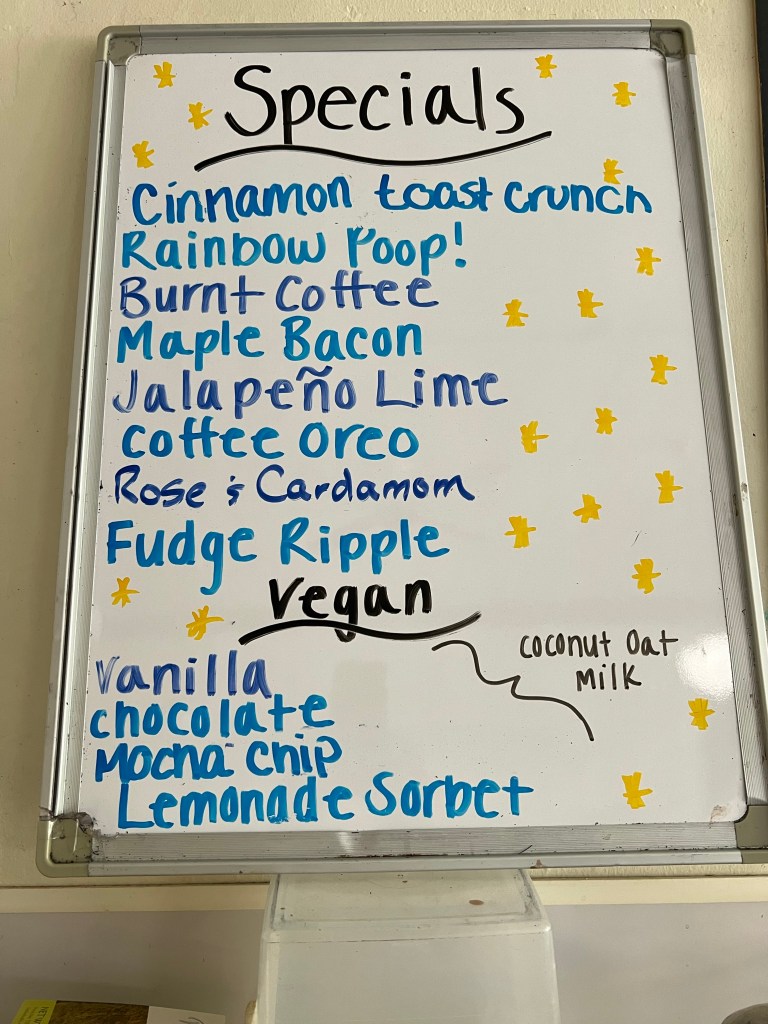 Specials
Cinnamon toast crunch
Rainbow Poop!
Burnt Coffee
Maple Bacon
Jalapeño Lime
Coffee Oreo
Rose & Cardamom
Fudge Ripple
Vegan
coconut Oat
milk
Vanilla
chocolate
Mocha chip
Lemonade Sorbet